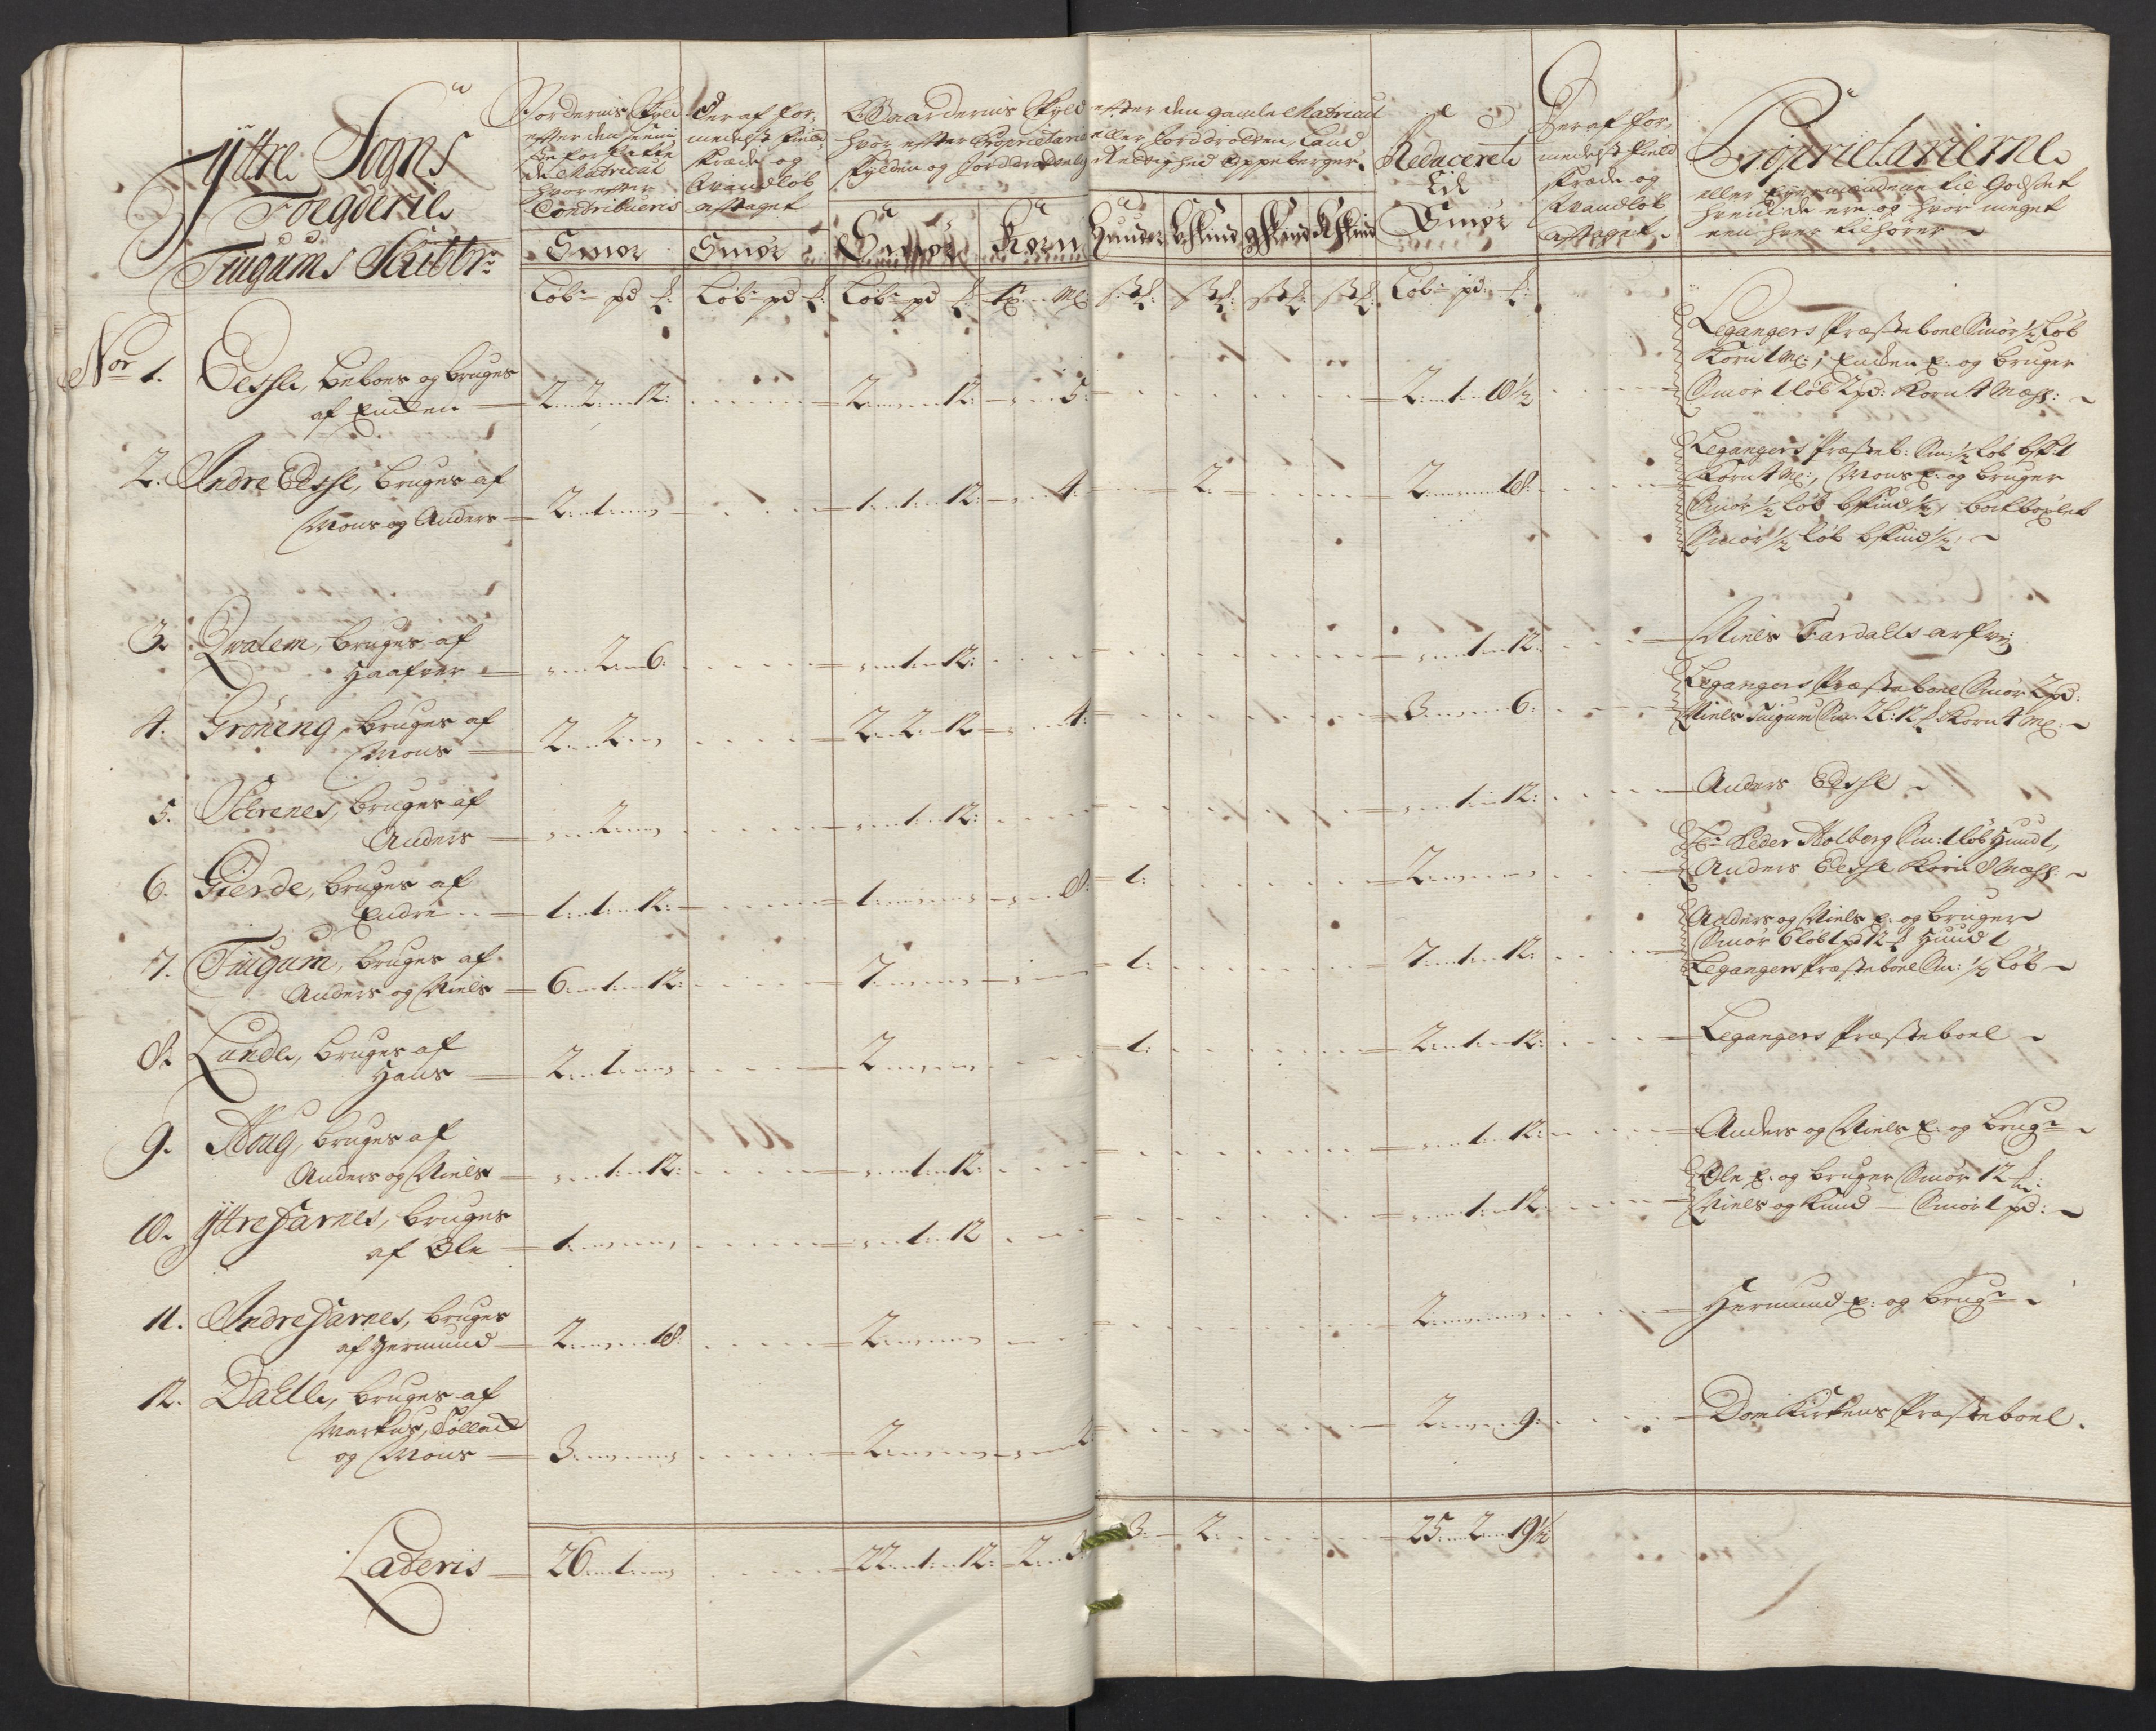 Yttre Sogns
Foegderie
Tuigums Skibbr:
Jordernis Skyld
efter den
de Matricul
hvorefter
Contribueris
Der af for-
medelst field
skrede og
Qvandløb
aftaget
Gaardernis Skyld efter den gamle Matricul
hvor efter Proprietarie eller Jorddrotten, Land
Skylden og Jorddrottens Rettighed Oppeberger
Reduceret
til
Smør
Der af for-
medelst field
skrede og
Qvandløb
aftaget
Proprietarierne
eller til Godset
hvem de ere og hvor meget
een hver tilhører
Smør Smør Smør Korn Huuder bskind gskind kskind
Løb pd Løb pd Løb pd Mæ: Løb pd
Nor 1. Eessle, beboes og bruges
af Endre 2 2 12: 2 12: 5: 2 1 10½
Legangers Præsteboel Smør ½ Løb
Korn 1 Mæ:; Endre E: og bruger
Smør 1 løb 2 pd: Korn 4 Mæl:
2. Indre Eessle, bruges af
Mons og Anders 2 1 1 1 12: 4: 2 2 18:
Legangers Præsteb: Sm: ½ Løb bsk: 1
Korn 4 Mæ:, Mons E: og bruger
Smør ½ Løb bskind ½, bort bøxlet
Smør ½ Løb bskind ½,
3. Qvalem, bruges af
Haafver 2 6: 1 12: 1 12:
Niels Fardalls arfvi:
4. Gröneng, bruges af
Mons 2 2 2 2 12 4: 3 6:
Legangers Præsteboel Smør 2 pd:
Niels Tuigum Sm: 2 l: 12 Korn 4 Mæ:
5. Schrenes, bruges af
Anders 2 1 12: 1 12:
Anders Eessle
6. Gierde, bruges af
Endre 1 1 12: 1 8: 1: 2
Peder Holberg Sm: 1 løb Huud 1,
Anders Eessle Korn 8 Mæl:
7. Tuigum, bruges af
Anders og Niels 6 1 12: 7 1: 7 1 12:
Anders og Niels E: og bruger
Smør 6 løb 1 pd 12 Huud 1
Legangers Præsteboel Sm: ½ Løb
8. Lunde, bruges af
Hans 2 1 2 1: 2 1 12:
Legangers Præsteboel
9. Houg, bruges af
Anders og Niels 1 12: 1 12: 1 12:
Anders og Niels E: og brugr
10. Yttre Farnes, bruges
af Ole 1 1 12 1 12:
Ole E: og bruger Smør 12
Niels og Knud Smør 1 pd:
11. Indre Farnes, bruges
af Hermund 2 18: 2 2
Hermund E: og brugr
12. Dalle, bruges af
Markus, Tollac
og Mons 3 2 2 9:
Dom Kirkens Præsteboel.
Lateris 26 1 22 1 12: 2 3: 2 25 2 19½